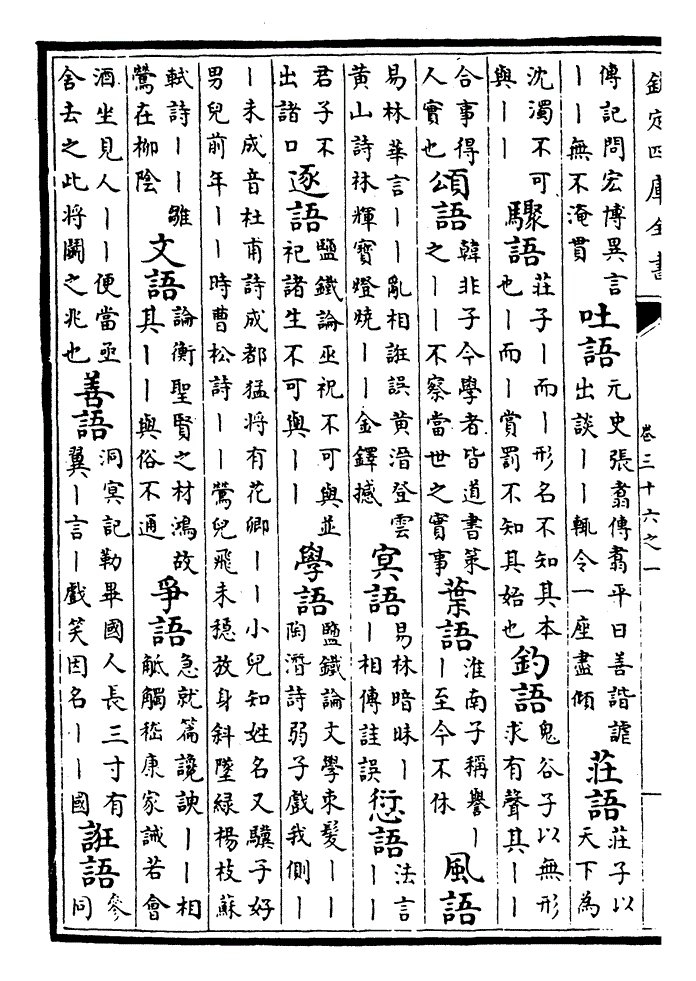 欽定四庫全書　卷三十六之一
傳記問宏博異言
丨丨無不淹貫
吐語
元史張翥傳翥平日善諧謔
出談丨丨輒令一座盡傾
莊語
莊子以
天下為
沈濁不可
與丨丨
驟語
莊子丨而丨形名不知其本
也丨而丨賞罰不知其始也
釣語
鬼谷子以無形
求有聲其丨丨
合事得
人實也
頌語
韓非子今學者皆道書筴
之丨丨不察當世之實事
葉語
淮南子稱譽丨
丨至今不休
風語
易林華言丨丨亂相誑誤黄溍登雲
黄山詩袜輝寶燈燒丨丨金鐸撼
冥語
易林暗昧丨
丨相傳詿誤
愆語
法言
丨丨
君子不
出諸口
逐語
鹽鐵論巫祝不可與並
祀諸生不可與丨丨
學語
鹽鐵論文學束髮丨丨
陶潛詩弱子戲我側丨
丨未成音杜甫詩成都猛将有花卿丨丨小兒知姓名又驥子好
男兒前年丨丨時曹松詩丨丨鶯兒飛未穏放身斜墜緑楊枝蘇
軾詩丨丨雛
鶯在柳陰
文語
論衡聖賢之材鴻故
其丨丨與俗不通
爭語
急就篇讒諛丨丨相
觝觸嵇康家誡若會
酒坐見人丨丨便當亟
舍去之此将鬬之兆也
善語
洞冥記勒畢國人長三寸有
翼丨言丨戲笑因名丨丨國
誑語
參
同